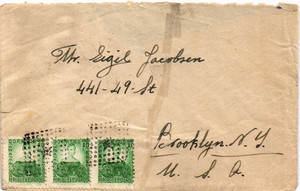 Mr. Eigil Jacobsen
441-49-St
Brooklyn. N.Y.
U. S. A.